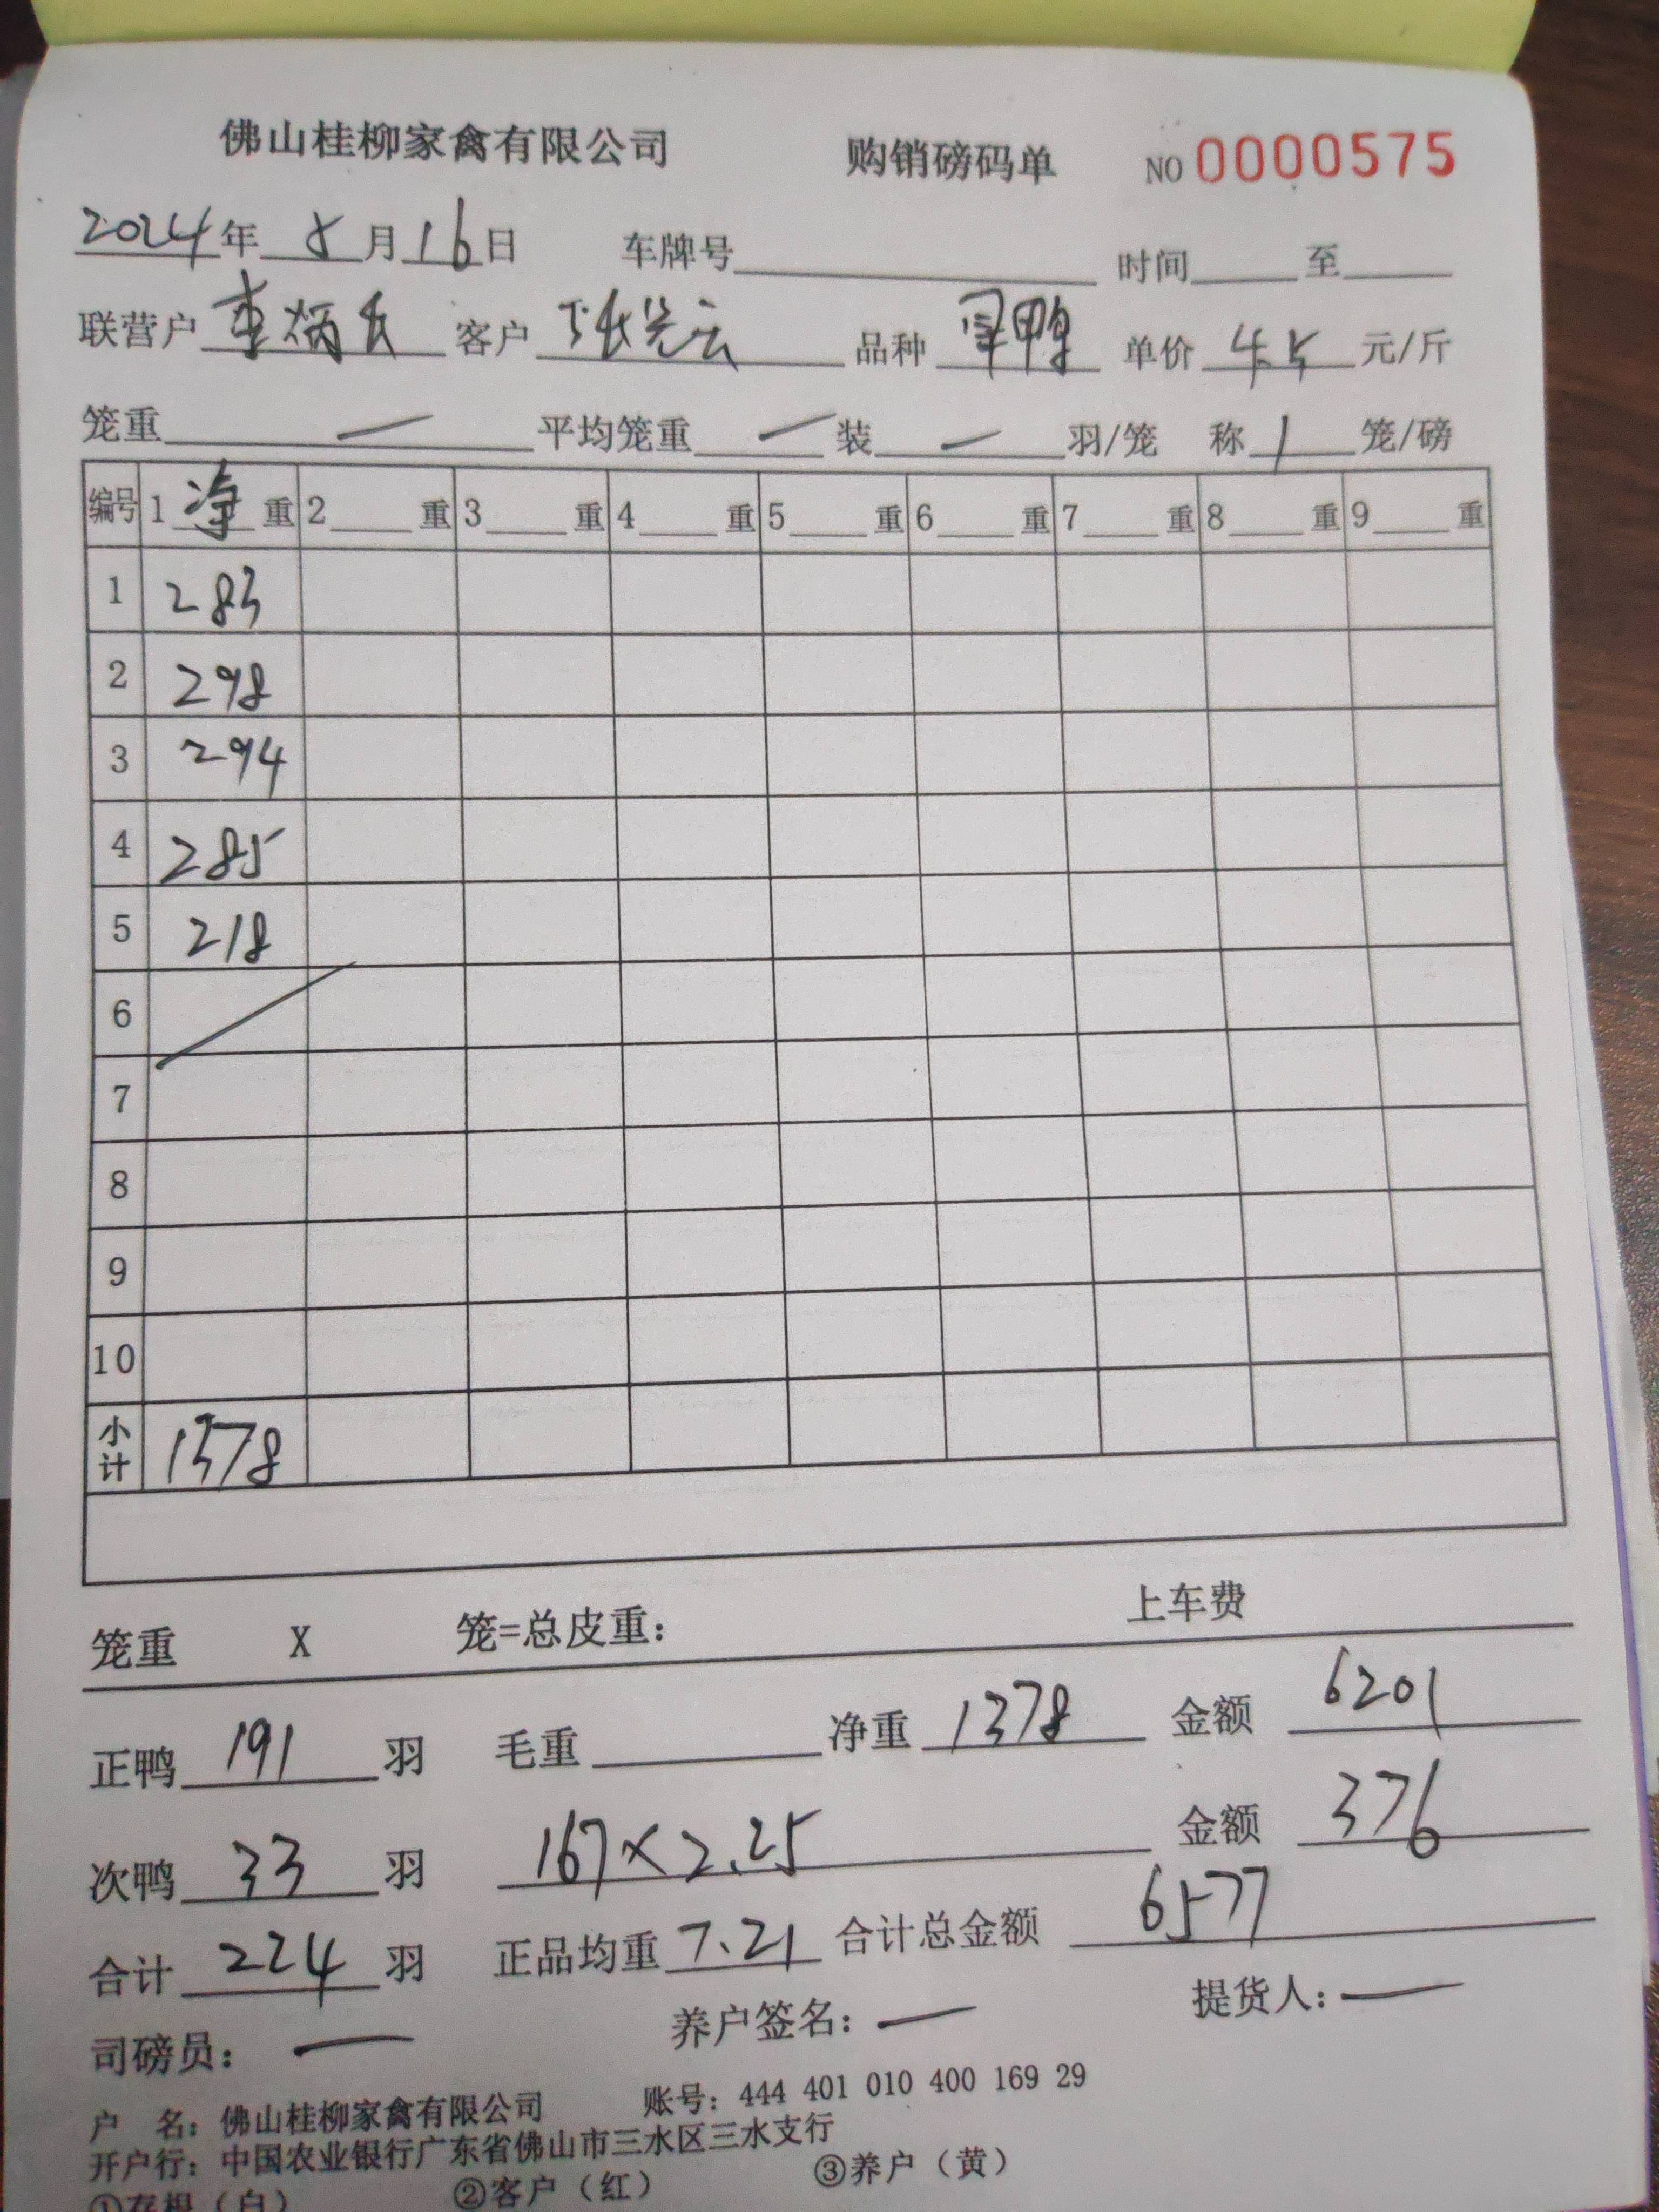 佛山桂柳家禽有限公司 购销磅码单 NO 0000575
2024年 8月16日 车牌号 时间 至
联营户 客户 张光云 品种 鸭 单价 4.5 元/斤
笼重 — 平均笼重 — 装 — 羽/笼 称 1 笼/磅
编号 1 净 重 2 重 3 重 4 重 5 重 6 重 7 重 8 重 9 重
1 283
2 298
3 294
4 285
5 218
6
7
8
9
10
小计 1378
笼重 X 笼=总皮重: 上车费
正鸭 191 羽 毛重 净重 1378 金额 6201
次鸭 33 羽 167×2.25 金额 376
合计 224 羽 正品均重 7.21 合计总金额 6577
司磅员: — 养户签名: — 提货人: —
户 名: 佛山桂柳家禽有限公司 账号: 444 401 010 400 169 29
开户行: 中国农业银行广东省佛山市三水区三水支行
①存根（白） ②客户（红） ③养户（黄）